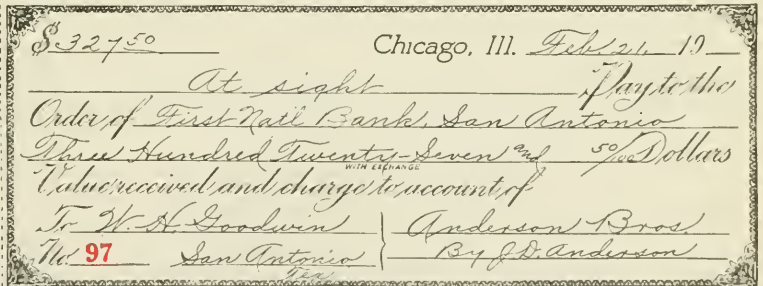 $ 327 50 Chicago, Ill. Feb. 21, 19
At sight Pay to the
Order of First Nat'l Bank, San Antonio
Three Hundred Twenty-Seven and 50/100 Dollars
WITH EXCHANGE
Value received and charge to account of
To W. H. Goodwin Anderson Bros.
No 97 San Antonio By J. D. Anderson
Tex